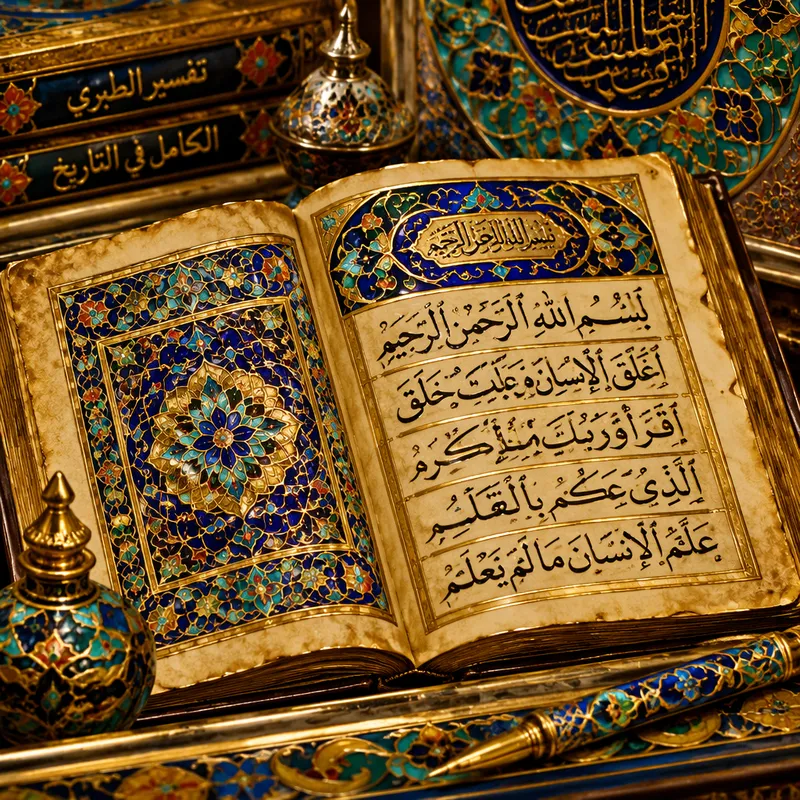 تفسير الطبري
الكامل في التاريخ
بسم الله الرحمن الرحيم
بسُم اللهِ الرَّحمن الرَّحيم
اَغلَقَ الإنسان خَلَقَ
اقرَأ وَربك
الَّذِى عَكُم بِالْقَلَم
عَلَّمَ الإنسَان مَا لَمَ يَعْلَمُ